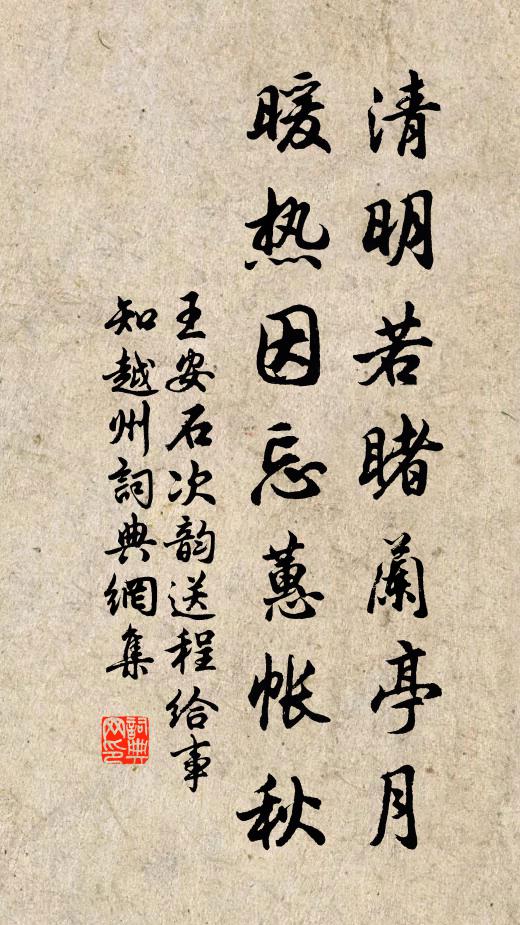 清明若睹蘭亭月
暖热因忘蕙帐秋
王安石次韵送程给事
知越州詞典網集
詞典
网印